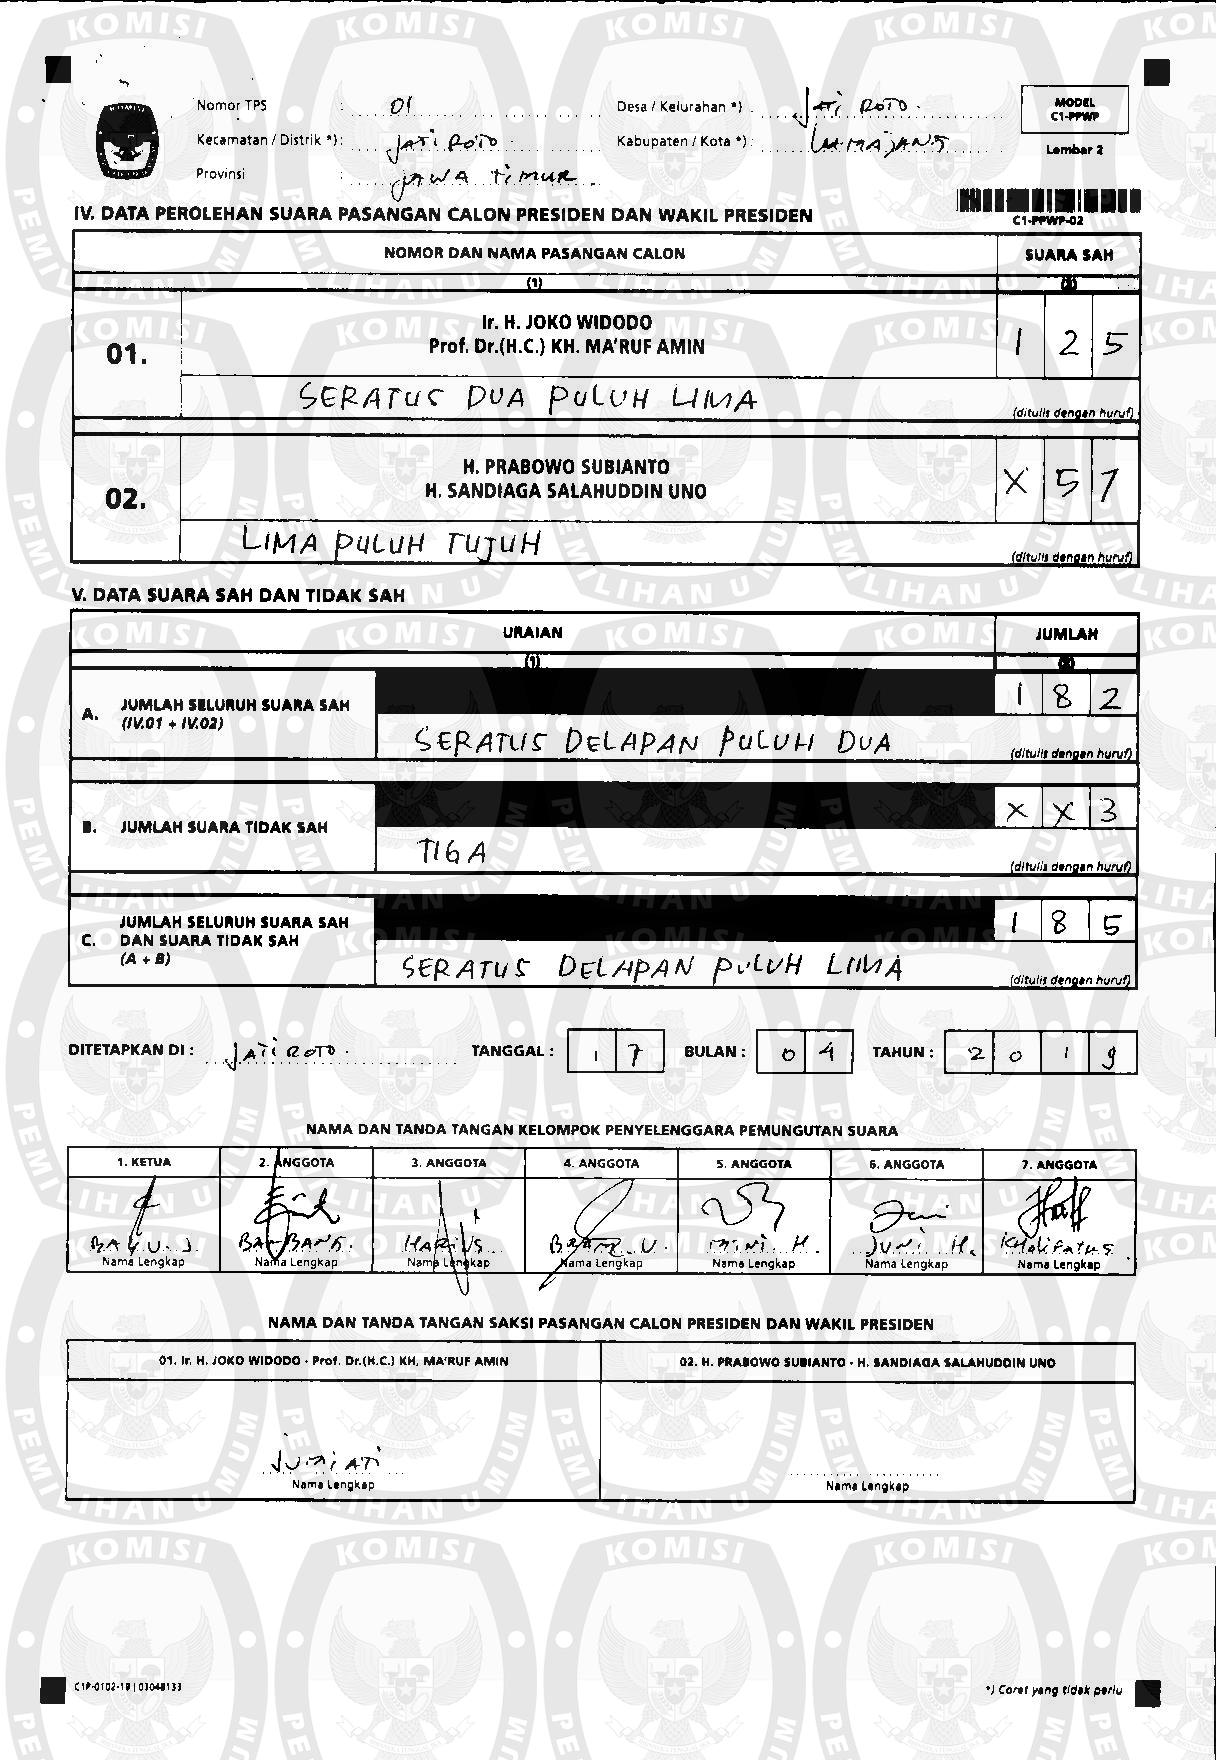 Nomor TPS : 01
Desa / Kelurahan *) : JATI ROTO.
MODEL
C1-PPWP
Kecamatan / Distrik *) : JATI ROTO.
Kabupaten / Kota *) : LUMAJANG
Lembar 2
Provinsi : JAWA TIMUR
IV. DATA PEROLEHAN SUARA PASANGAN CALON PRESIDEN DAN WAKIL PRESIDEN
C1-PPWP-02
NOMOR DAN NAMA PASANGAN CALON SUARA SAH
(1) (2)
01. Ir. H. JOKO WIDODO
Prof. Dr.(H.C.) KH. MA'RUF AMIN 1 2 5
SERATUS DUA PULUH LIMA (ditulis dengan huruf)
02. H. PRABOWO SUBIANTO
H. SANDIAGA SALAHUDDIN UNO X 5 7
LIMA PULUH TUJUH (ditulis dengan huruf)
V. DATA SUARA SAH DAN TIDAK SAH
URAIAN JUMLAH
(1) (2)
A. JUMLAH SELURUH SUARA SAH
(IV.01 + IV.02) 1 8 2
SERATUS DELAPAN PULUH DUA (ditulis dengan huruf)
B. JUMLAH SUARA TIDAK SAH X X 3
TIGA (ditulis dengan huruf)
C. JUMLAH SELURUH SUARA SAH
DAN SUARA TIDAK SAH
(A + B) 1 8 5
SERATUS DELAPAN PULUH LIMA (ditulis dengan huruf)
DITETAPKAN DI : JATI ROTO. TANGGAL : 1 7 BULAN : 0 4 TAHUN : 2 0 1 9
NAMA DAN TANDA TANGAN KELOMPOK PENYELENGGARA PEMUNGUTAN SUARA
1. KETUA 2. ANGGOTA 3. ANGGOTA 4. ANGGOTA 5. ANGGOTA 6. ANGGOTA 7. ANGGOTA
BAYU. J. BAMBANG. HARIUS U. MINI H. JUNI H. KHALIFATUS.
Nama Lengkap Nama Lengkap Nama Lengkap Nama Lengkap Nama Lengkap Nama Lengkap Nama Lengkap
NAMA DAN TANDA TANGAN SAKSI PASANGAN CALON PRESIDEN DAN WAKIL PRESIDEN
01. Ir. H. JOKO WIDODO - Prof. Dr.(H.C.) KH. MA'RUF AMIN 02. H. PRABOWO SUBIANTO - H. SANDIAGA SALAHUDDIN UNO
JUMIATI
Nama Lengkap Nama Lengkap
C1P-0102-19 | 03048133
*) Coret yang tidak perlu